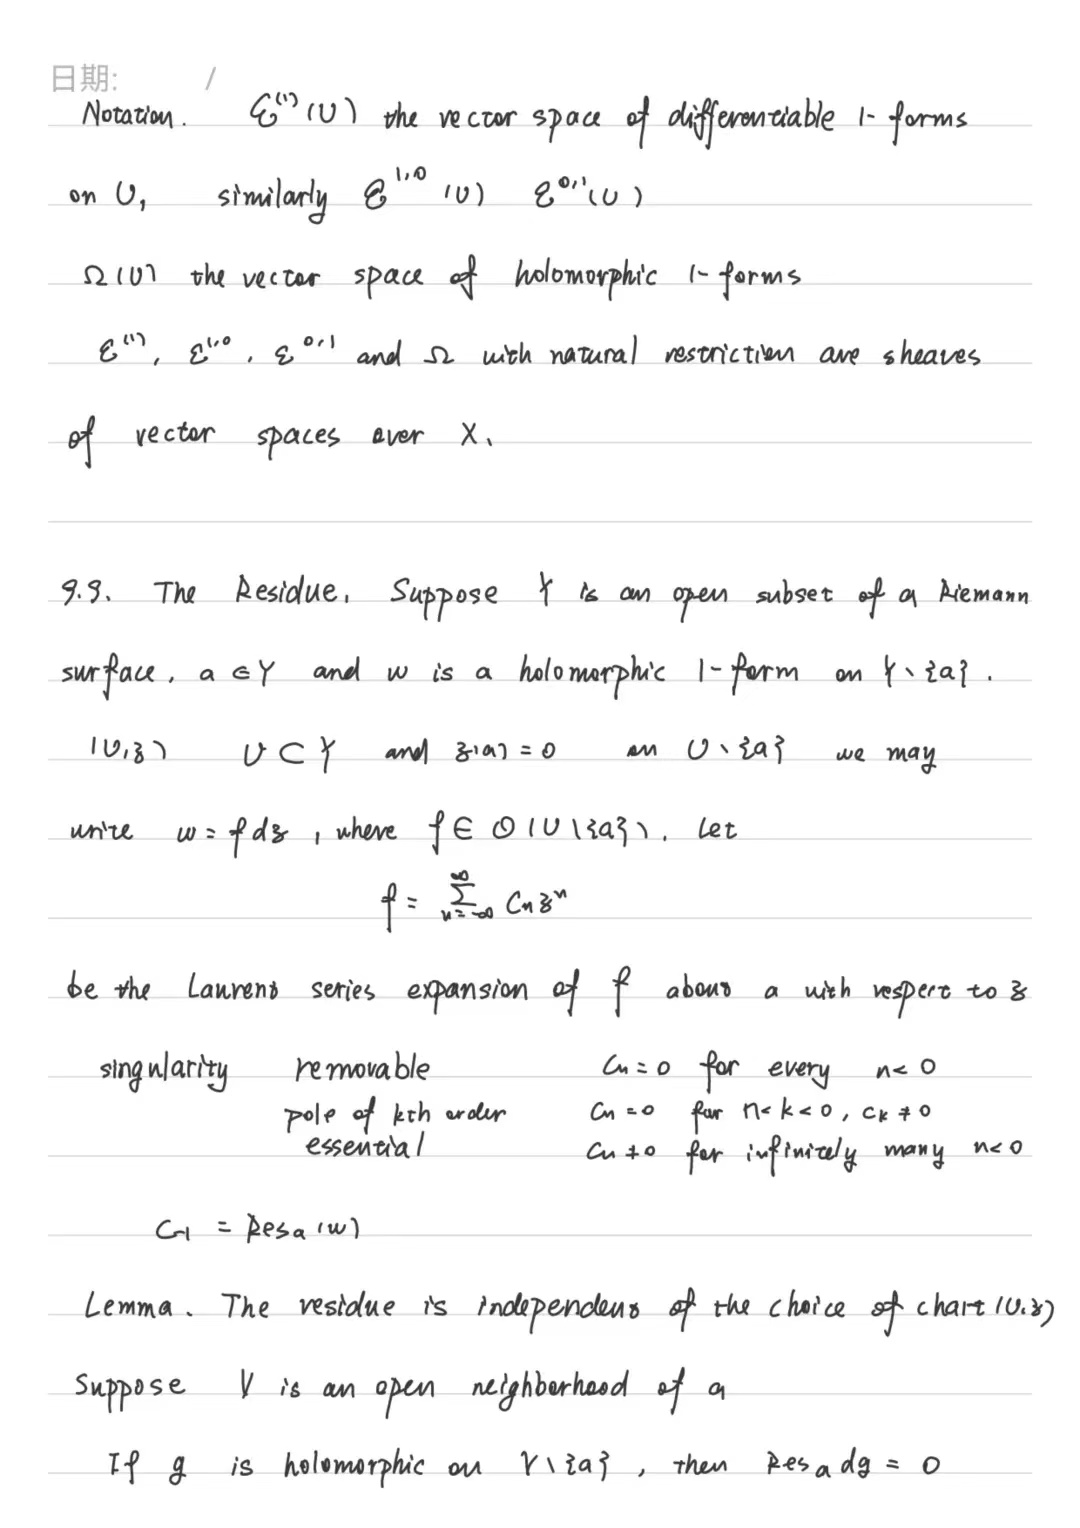 日期: /
Notation. ℰ⁽¹⁾(U) the vector space of differentiable 1-forms
on U, similarly ℰ¹,⁰(U) ℰ⁰,¹(U)
Ω(U) the vector space of holomorphic 1-forms
ℰ⁽¹⁾, ℰ¹,⁰, ℰ⁰,¹ and Ω with natural restriction are sheaves
of vector spaces over X.
9.9. The Residue. Suppose Y is an open subset of a Riemann
surface, a ∈ Y and w is a holomorphic 1-form on Y \ {a}.
(U,z) U ⊂ Y and z(a) = 0 on U \ {a} we may
write w = f dz, where f ∈ O(U\{a}). Let
f = ∑_{n=-∞}^{∞} Cn zⁿ
be the Laurent series expansion of f about a with respect to z
singularity removable Cn = 0 for every n < 0
pole of kth order Cn = 0 for n < k < 0, Ck ≠ 0
essential Cn ≠ 0 for infinitely many n < 0
C₋₁ = Resₐ(w)
Lemma. The residue is independent of the choice of chart (U.z)
Suppose V is an open neighborhood of a
If g is holomorphic on V\{a}, then Resₐ dg = 0